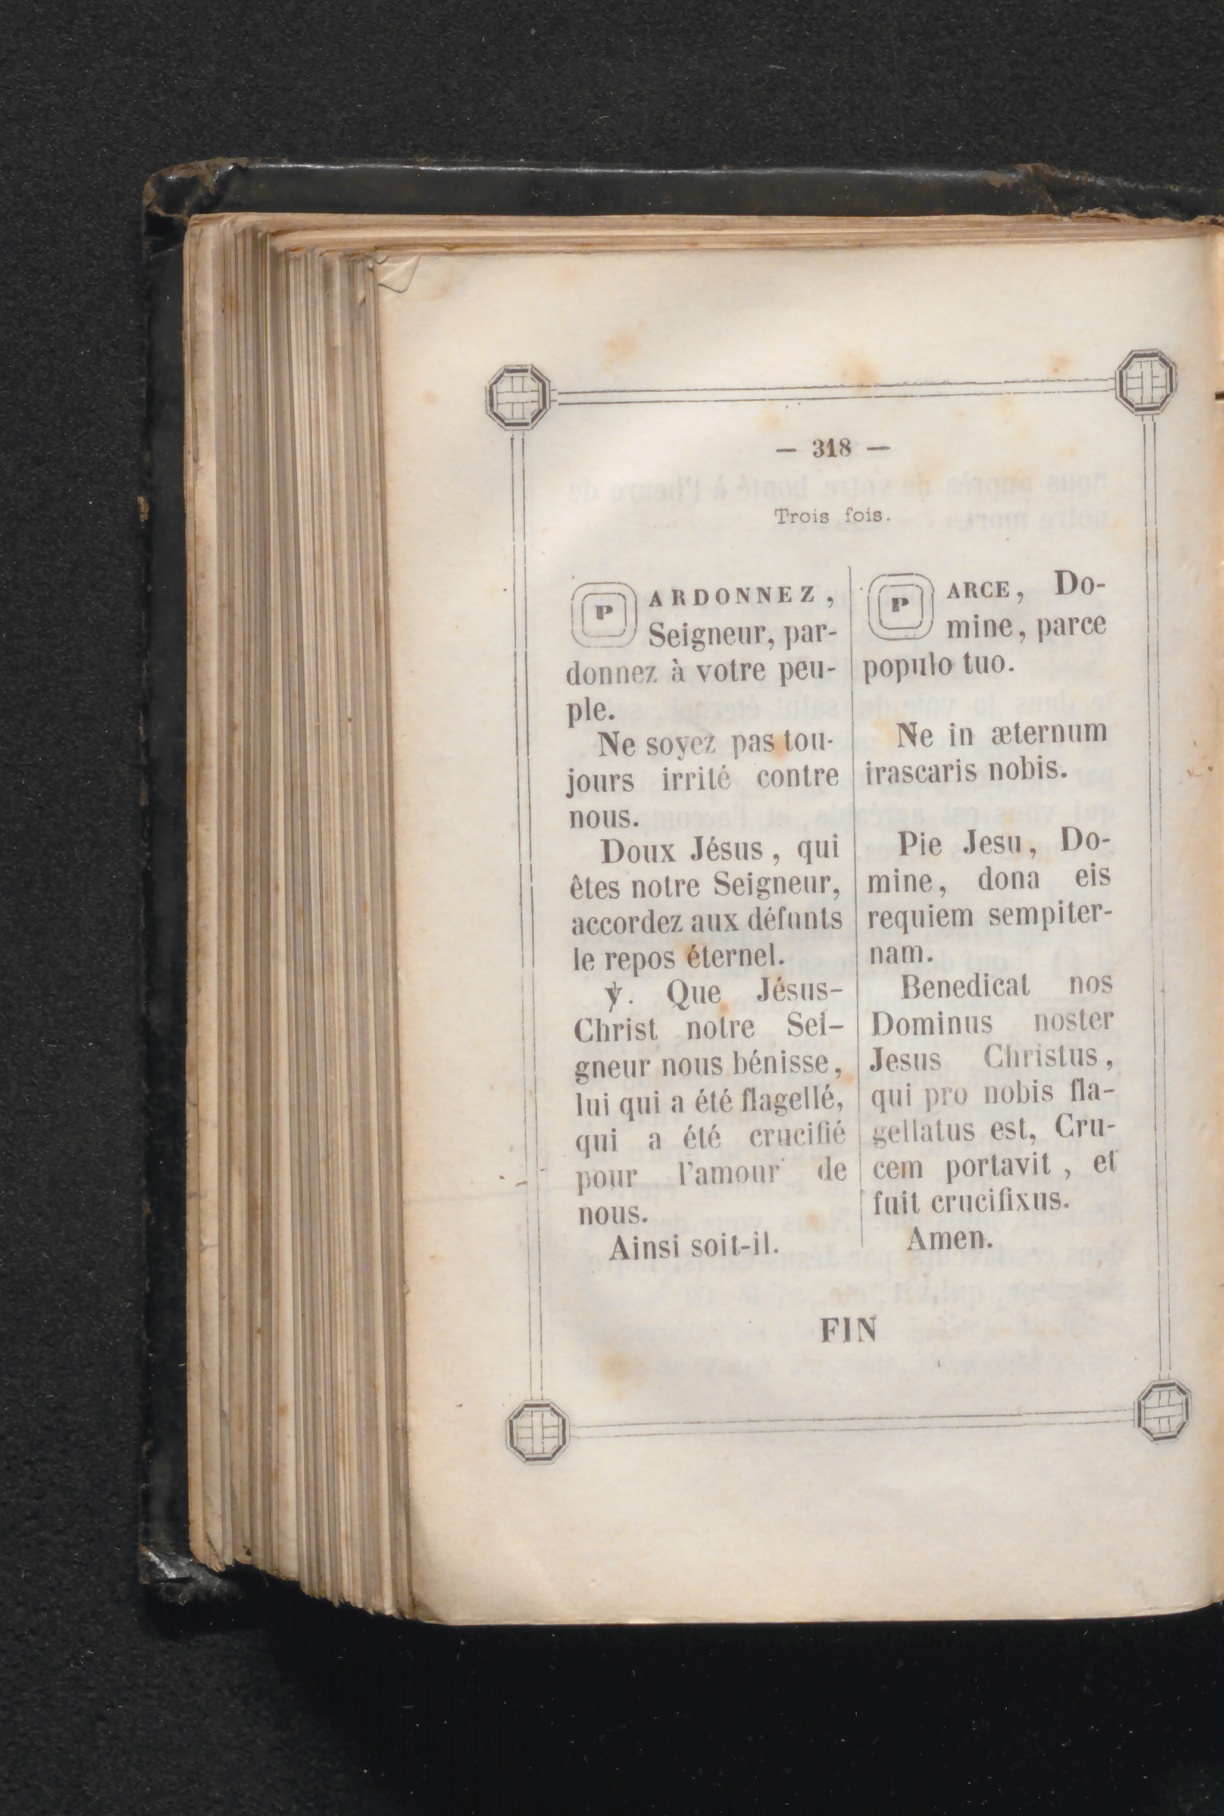 — 318 —
Trois fois.
PARDONNEZ,
Seigneur, par-
donnez à votre peu-
ple.
Ne soyez pas tou-
jours irrité contre
nous.
Doux Jésus, qui
êtes notre Seigneur,
accordez aux défunts
le repos éternel.
℣. Que Jésus-
Christ notre Sei-
gneur nous bénisse,
lui qui a été flagellé,
qui a été crucifié
pour l'amour de
nous.
Ainsi soit-il.
PARCE, Do-
mine, parce
populo tuo.
Ne in æternum
irascaris nobis.
Pie Jesu, Do-
mine, dona eis
requiem sempiter-
nam.
Benedicat nos
Dominus noster
Jesus Christus,
qui pro nobis fla-
gellatus est, Cru-
cem portavit, et
fuit crucifixus.
Amen.
FIN